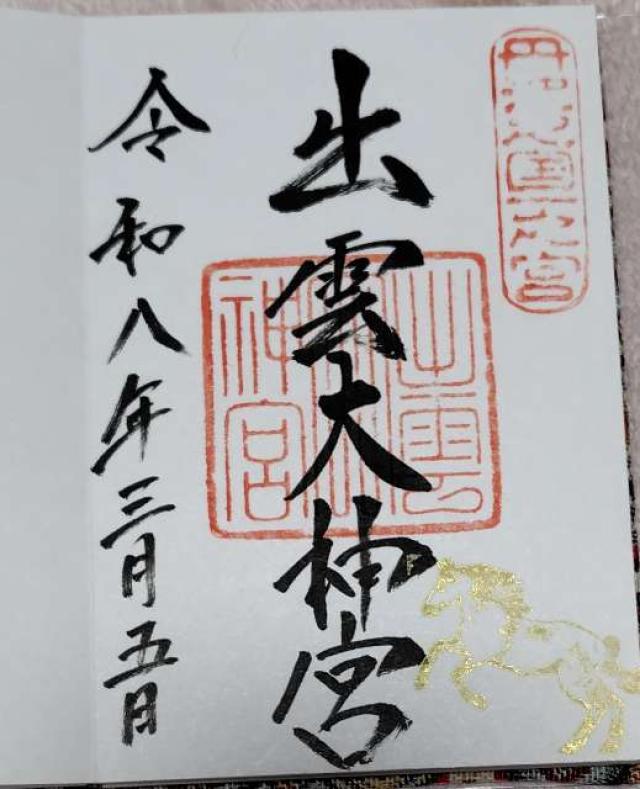 丹波國一之宮
出雲大神宮
出雲大神宮
令和八年三月五日